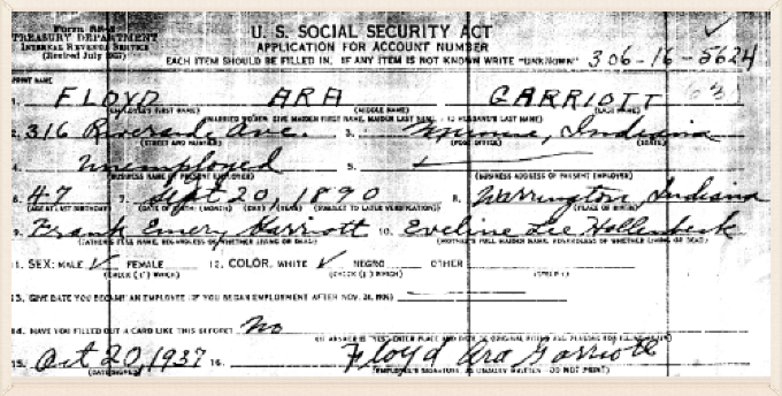 Form SS-5
TREASURY DEPARTMENT
INTERNAL REVENUE SERVICE
(Revised July 1937)
U. S. SOCIAL SECURITY ACT
APPLICATION FOR ACCOUNT NUMBER
EACH ITEM SHOULD BE FILLED IN. IF ANY ITEM IS NOT KNOWN WRITE "UNKNOWN" 306-16-5624
PRINT NAME
1. FLOYD ARA GARRIOTT
(EMPLOYEE'S FIRST NAME) (MIDDLE NAME) (LAST NAME)
(MARRIED WOMEN: GIVE MAIDEN FIRST NAME, MAIDEN LAST NAME, HUSBAND'S LAST NAME)
2. 316 Riverside Ave. 3. Muncie, Indiana
(STREET AND NUMBER) (POST OFFICE) (STATE)
4. Unemployed 5.
(BUSINESS NAME OF PRESENT EMPLOYER) (BUSINESS ADDRESS OF PRESENT EMPLOYER)
6. 47 7. Sept 20, 1890 8. Warrington, Indiana
(AGE AT LAST BIRTHDAY) (DATE OF BIRTH: (MONTH) (DAY) (YEAR) (SUBJECT TO LATER VERIFICATION)) (PLACE OF BIRTH)
9. Frank Emery Garriott 10. Eveline Lee Hollenbeck
(FATHER'S FULL NAME, REGARDLESS OF WHETHER LIVING OR DEAD) (MOTHER'S FULL MAIDEN NAME, REGARDLESS OF WHETHER LIVING OR DEAD)
11. SEX: MALE ✓ FEMALE 12. COLOR: WHITE ✓ NEGRO OTHER
(CHECK (✓) WHICH) (CHECK (✓) WHICH) (SPECIFY)
13. GIVE DATE YOU BECAME AN EMPLOYEE (IF YOU BEGAN EMPLOYMENT AFTER NOV. 24, 1936)
14. HAVE YOU FILLED OUT A CARD LIKE THIS BEFORE? No
(IF ANSWER IS "YES" ENTER PLACE AND DATE OF ORIGINAL FILING AND REASONS FOR FILING AGAIN)
15. Oct 20, 1937 16. Floyd Ara Garriott
(DATE SIGNED) (EMPLOYEE'S SIGNATURE, AS USUALLY WRITTEN - DO NOT PRINT)